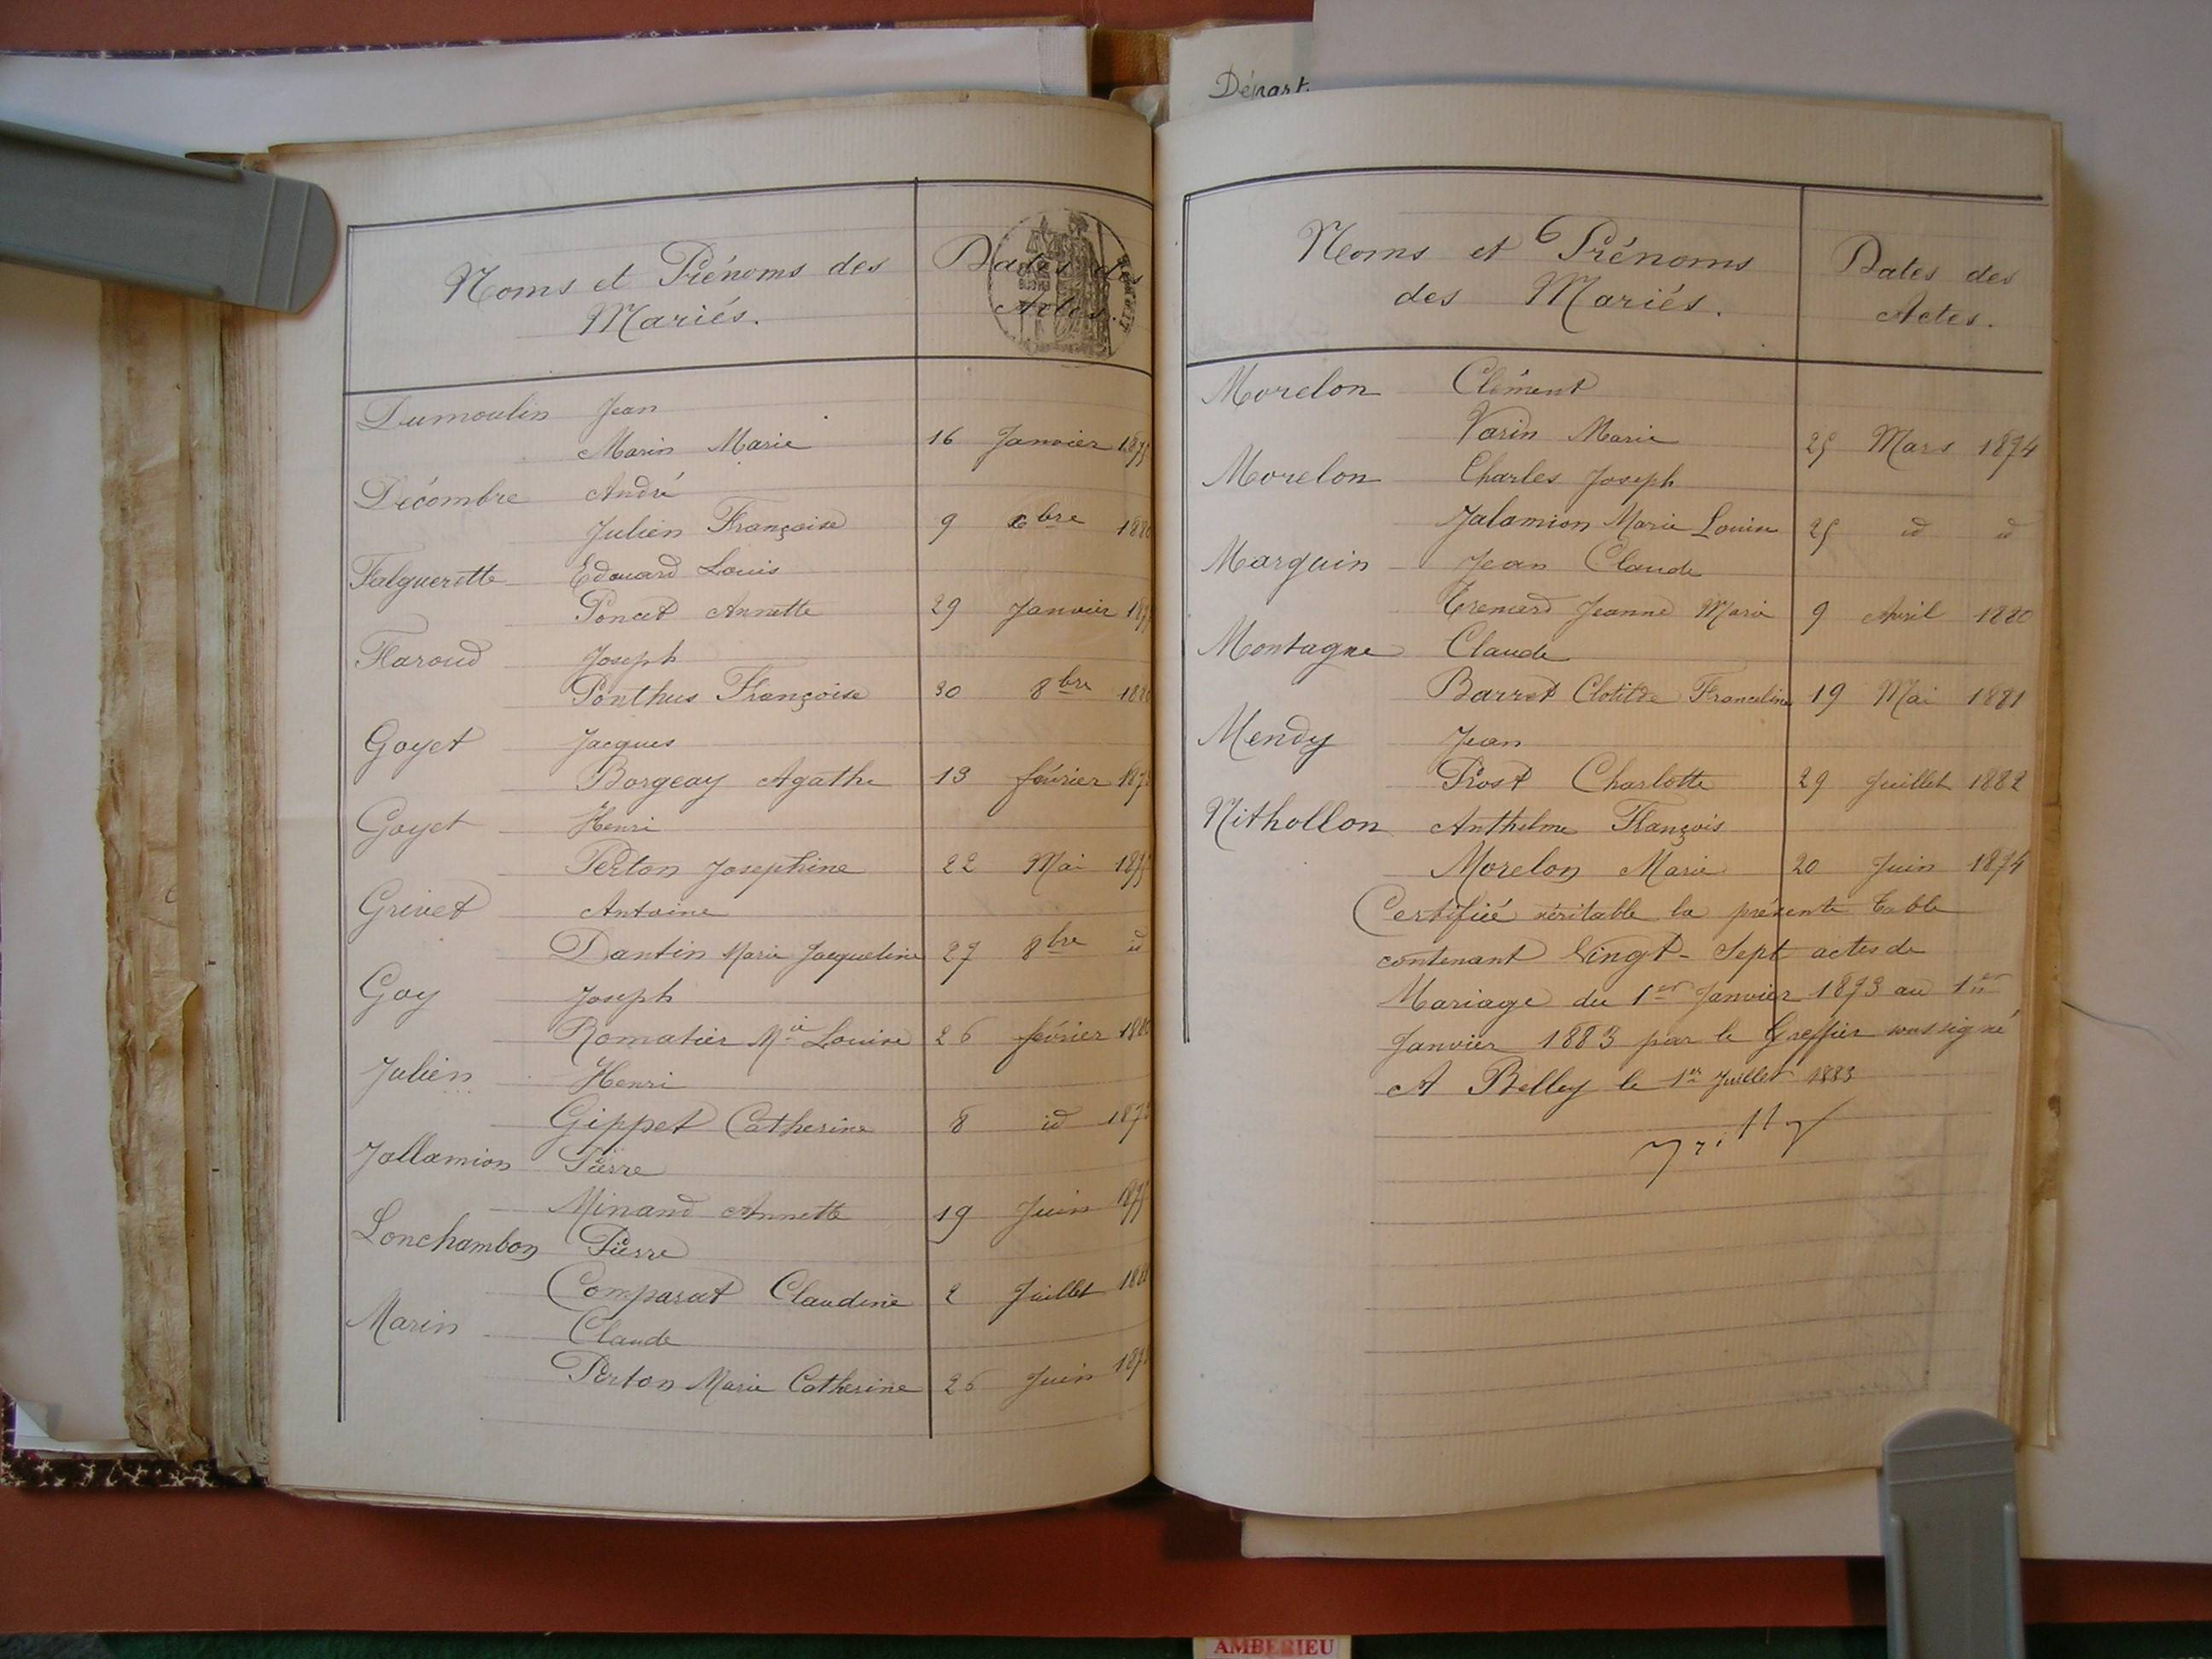 Départ.
Noms et Prénoms des
Mariés.
Dates des
Actes.
Dumoulin Jean
Marin Marie 16 Janvier 1875
Décombre André
Julien Françoise 9 xbre 1880
Falguerette Edouard Louis
Poncet Annette 29 Janvier
Faroud Joseph
Ponthus Françoise 30 8bre 1880
Goyet Jacques
Borgeay Agathe 13 février
Goyet Henri
Perton Josephine 22 Mai 1875
Grivet Antoine
Dantin Marie Jacqueline 27 8bre id
Goy Joseph
Romatier Mie Louise 26 février 1880
Julien Henri
Gippet Catherine 8 id 1873
Jallamion Pierre
Minand Annette 19 Juin 1875
Lonchambon Pierre
Comparat Claudine 2 Juillet
Marin Claude
Perton Marie Catherine 26 Juin
Noms et Prénoms
des Mariés.
Dates des
Actes.
Morelon Clément
Varin Marie 25 Mars 1874
Morelon Charles Joseph
Jalamion Marie Louise 25 id id
Marguin Jean Claude
Trenard Jeanne Marie 9 Avril 1880
Montagne Claude
Barret Clotilde Franceline 19 Mai 1881
Mendy Jean
Prost Charlotte 29 Juillet 1882
Nithollon Anthelme François
Morelon Marie 20 Juin 1874
Certifié véritable la présente Table
contenant Vingt-Sept actes de
Mariage du 1er Janvier 1873 au 1er
Janvier 1883 par le Greffier soussigné
A Belley le 1er Juillet 1883
AMBERIEU